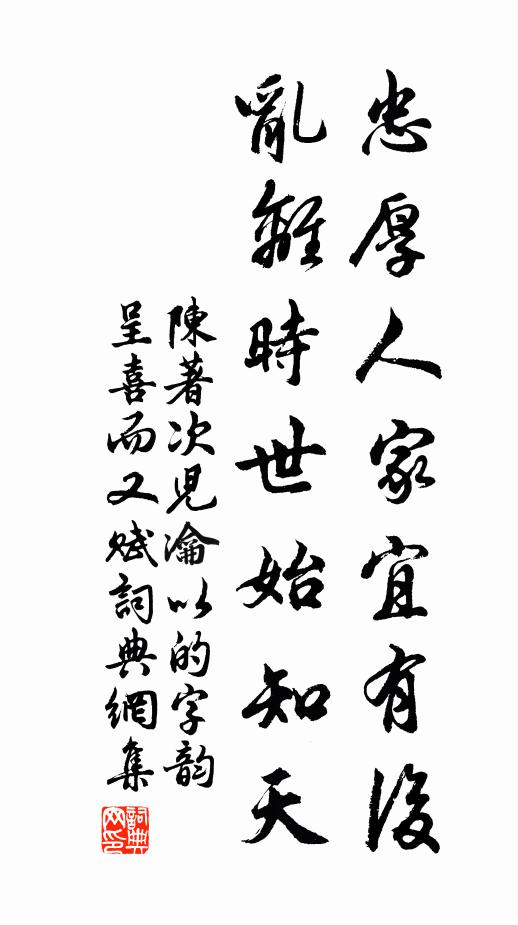 忠厚人家宜有後
亂離時世始知天
陳著次兒瀹以的字韵
呈喜而又賦詞典網集
詞典网印